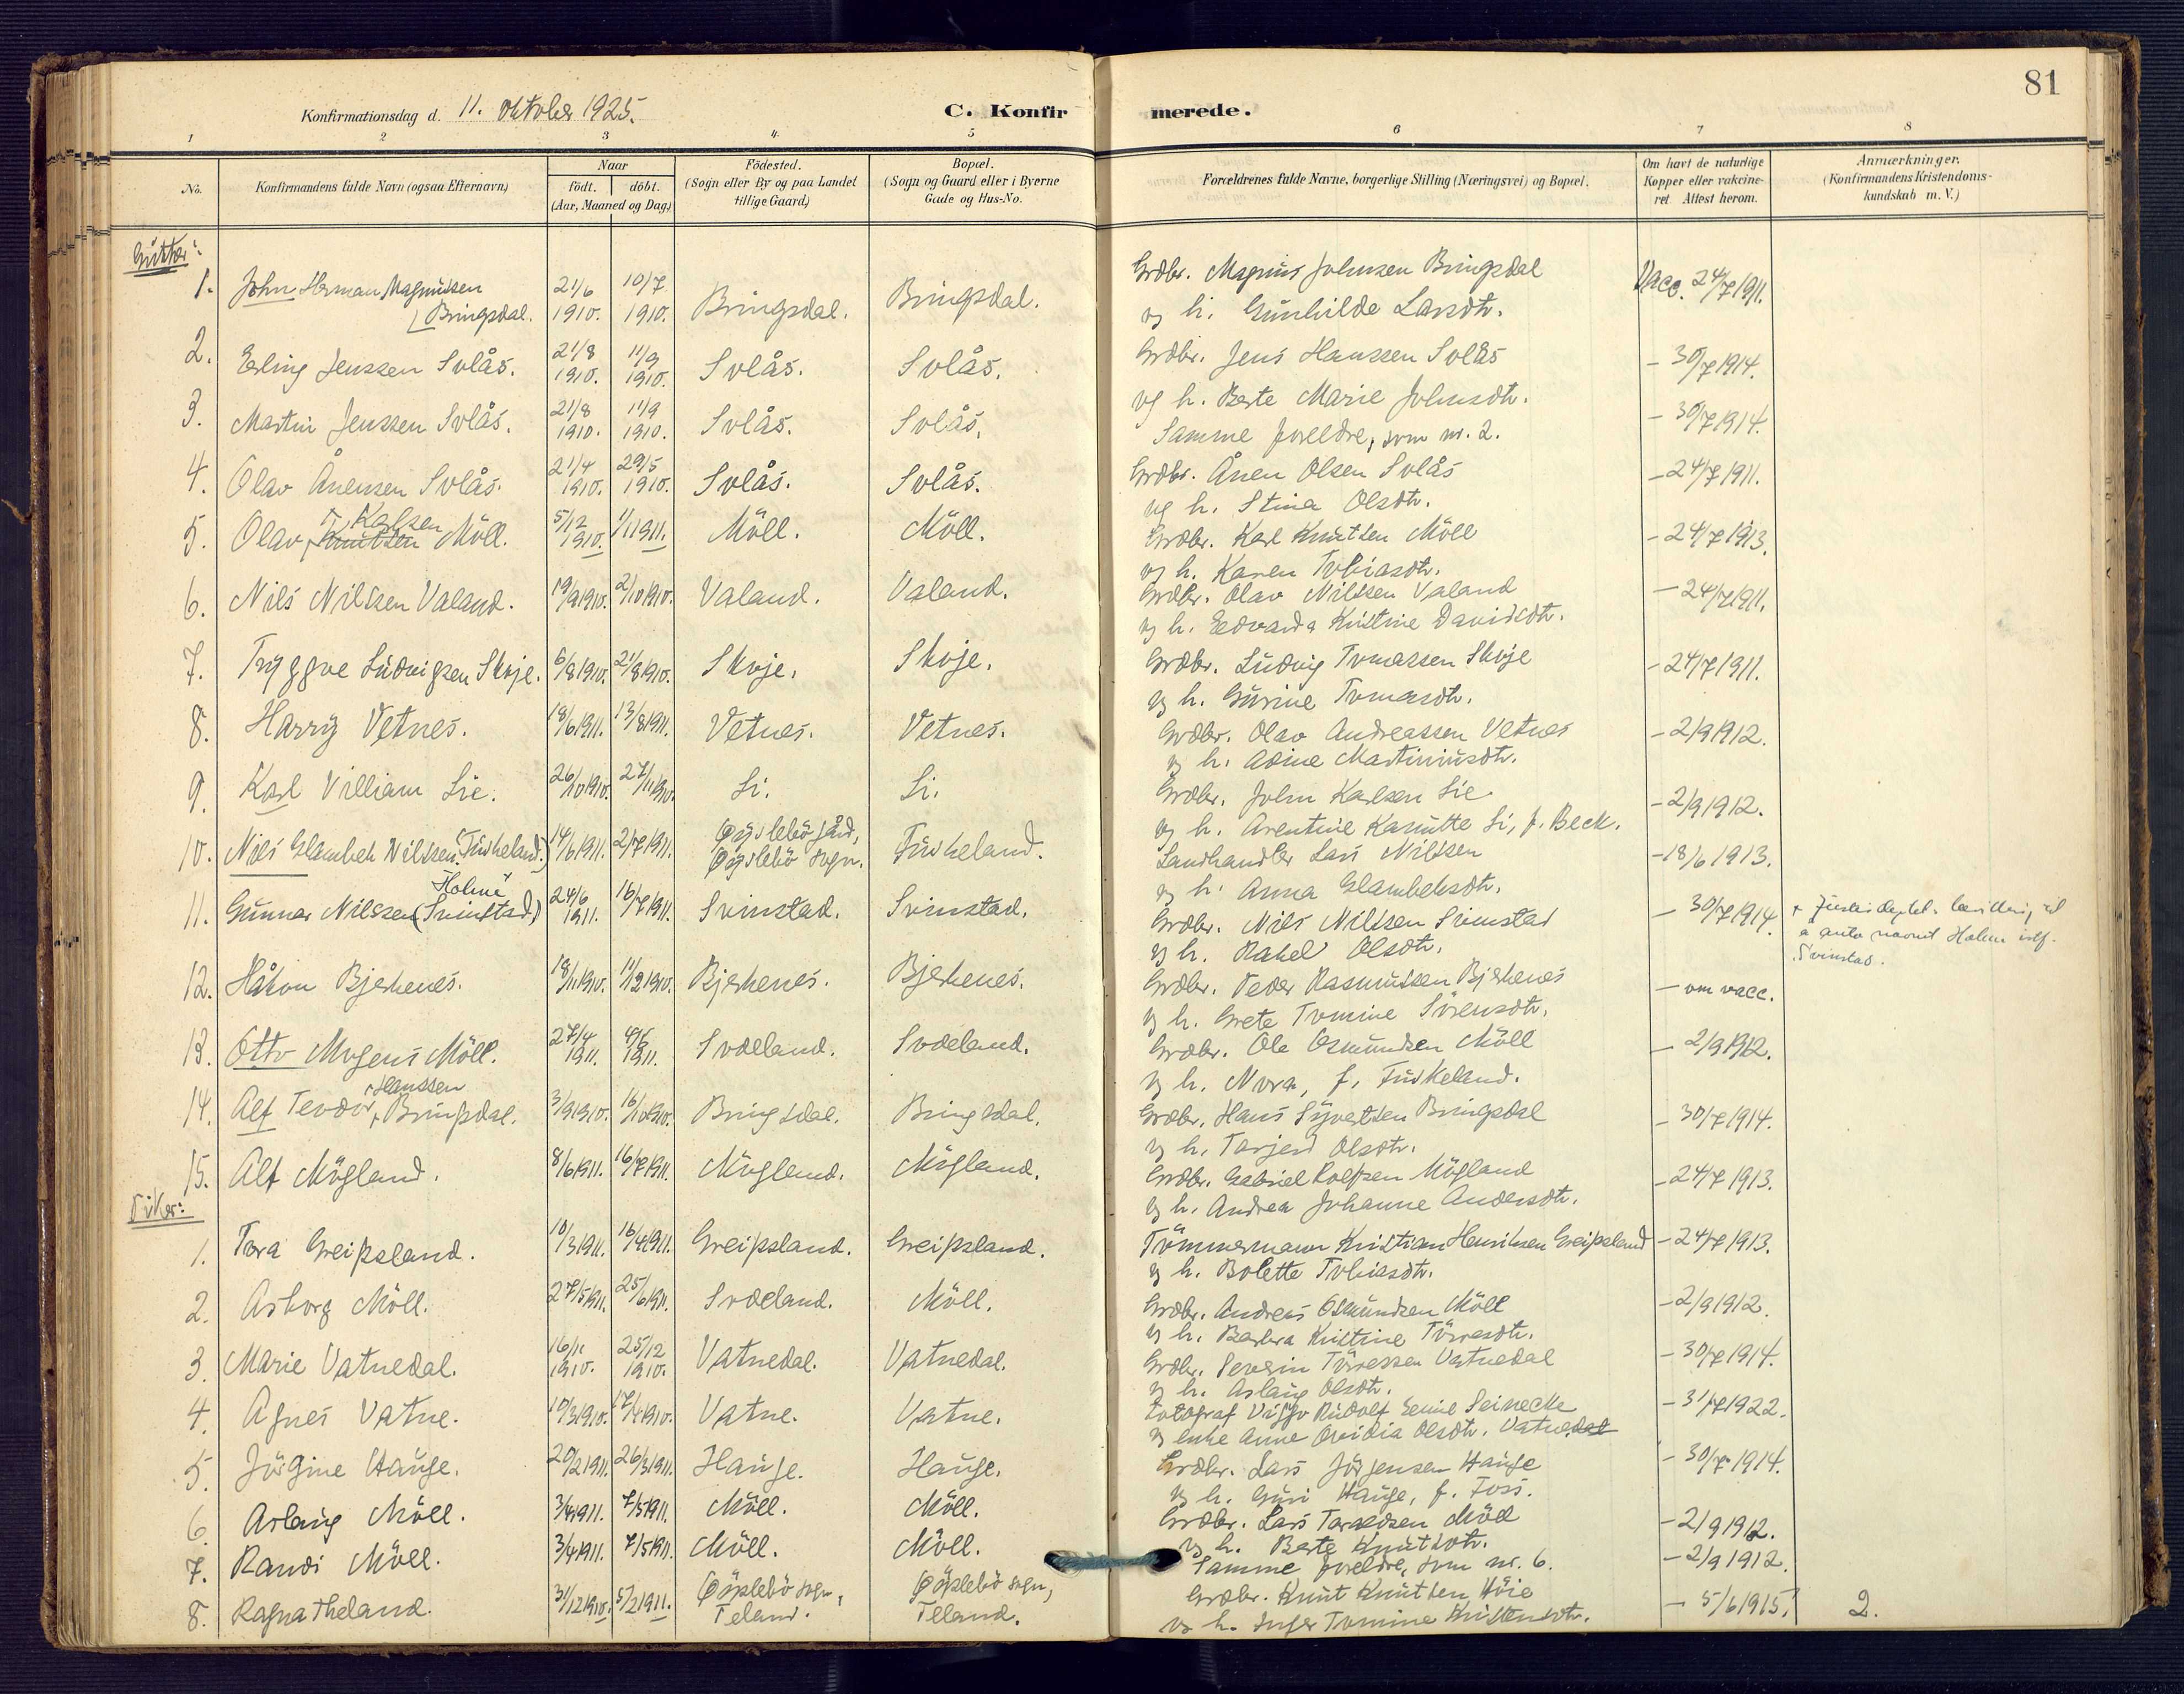 81
Konfirmationsdag d. 11. oktober 1925.
C. Konfirmerede.
1 2 3 4. 5 6 7 8
No.
Konfirmandens fulde Navn (ogsaa Efternavn)
Naar
födt. döbt.
(Aar, Maaned og Dag)
Födested.
(Sogn eller By og paa Landet
tillige Gaard)
Bopæl.
(Sogn og Gaard eller i Byerne
Gade og Hus-No.
Forældrenes fulde Navne, borgerlige Stilling (Næringsvei) og Bopæl.
Om havt de naturlige
Kopper eller vakcine-
ret Attest herom.
Anmærkninger.
(Konfirmandens Kristendoms-
kundskab m. V.)
Gutter:
1. John Herman Magnussen Bringsdal. 21/6 1910. 10/7 1910. Bringsdal. Bringsdal. Grdbr. Magnus Johnsen Bringsdal Vacc. 24/7 1911.
og h. Gunhilde Larsdtr.
2. Erling Jenssen Solås. 21/8 1910. 11/9 1910. Solås. Solås. Grdbr. Jens Hanssen Solås - 30/7 1914.
og h. Berte Marie Johnsdtr.
3. Martin Jenssen Solås. 21/8 1910. 11/9 1910. Solås. Solås. Samme foreldre, som nr. 2. - 30/7 1914.
4. Olav Ånensen Solås. 21/4 1910. 29/5 1910. Solås. Solås. Grdbr. Ånen Olsen Solås - 24/7 1911.
og h. Stina Olsdtr.
5. Olav Knutsen Karlsen Möll. 5/12 1910. 1/1 1911. Möll. Möll. Grdbr. Karl Knutsen Möll - 24/7 1913.
og h. Karen Tobiasdtr.
6. Nils Nilssen Valand. 19/9 1910. 2/10 1910. Valand. Valand. Grdbr. Olav Nilssen Valand - 24/7 1911.
og h. Edvarda Kristine Davidsdtr.
7. Tryggve Ludvigsen Skoje. 6/8 1910. 21/8 1910. Skoje. Skoje. Grdbr. Ludvig Tomassen Skoje - 24/7 1911.
og h. Gurine Tomasdtr.
8. Harry Vetnes. 18/6 1911. 13/8 1911. Vetnes. Vetnes. Grdbr. Olav Andreassen Vetnes - 2/9 1912.
og h. Adine Martiniusdtr.
9. Karl Villiam Lie. 26/10 1910. 27/11 1910. Li. Li. Grdbr. John Karlsen Lie - 2/9 1912.
og h. Arentine Kasutte Li, f. Beck.
10. Nils Glambek Nilssen (Fuskeland.) 14/6 1911. 2/7 1911. Øyslebö sogn. Fuskeland. Landhandler Lars Nilssen - 18/6 1913.
og h. Anna Glambeksdtr.
11. Gunnar Nilssen (Svinstad) Holme 24/6 1911. 16/7 1911. Svinstad. Svinstad. Grdbr. Nils Nilssen Svinstad - 30/7 1914.
og h. Rakel Olsdtr.
a anta navnet Holme istf.
Svinstad.
12. Håkon Bjerkenes. 18/11 1910. 11/12 1910. Bjerkenes. Bjerkenes. Grdbr. Peder Rasmussen Bjerkenes - om vacc.
og h. Grete Tomine Sörensdtr.
13. Otto Mogens Möll. 27/4 1911. 1911. Sodeland. Sodeland. Grdbr. Ole Osmundsen Möll - 2/9 1912.
og h. Nora, f. Fuskeland.
14. Alf Teodor Hanssen Bringsdal. 3/9 1910. 16/10 1910. Bringsdal. Bringsdal. Grdbr. Hans Syvertsen Bringsdal - 30/7 1914.
og h. Tarjerd Olsdtr.
15. Alf Mögland. 8/6 1911. 16/7 1911. Mögland. Mögland. Grdbr. Gabriel Rolfsen Mögland - 24/7 1913.
og h. Andrea Johanne Andersdtr.
Piker:
1. Tora Greipsland. 10/3 1911. 16/4 1911. Greipsland. Greipsland. Tömmermann Kristian Henriksen Greipsland - 24/7 1913.
og h. Bolette Tobiasdtr.
2. Asborg Möll. 27/5 1911. 25/6 1911. Sodeland. Möll. Grdbr. Andreas Osmundsen Möll - 2/9 1912.
og h. Barbra Kristine Törresdtr.
3. Marie Vatnedal. 16/11 1910. 25/12 1910. Vatnedal. Vatnedal. Grdbr. Severin Törressen Vatnedal - 30/7 1914.
og h. Aslaug Olsdtr.
4. Agnes Vatne. 10/3 1910. 17/4 1910. Vatne. Vatne. Fotograf Viggo Rudolf Emil Seinecke - 31/7 1922.
og enke Anne Ovidia Olsdtr. Vatnedal
5. Jörgine Hauge. 20/2 1911. 26/3 1911. Hauge. Hauge. Grdbr. Lars Jörgensen Hauge - 30/7 1914.
og h. Guri Hauge, f. Foss.
6. Aslaug Möll. 3/4 1911. 7/5 1911. Möll. Möll. Grdbr. Lars Taraldsen Möll - 2/9 1912.
og h. Berte Knutsdtr.
7. Randi Möll. 3/4 1911. 7/5 1911. Möll. Möll. Samme foreldre, som nr. 6. - 2/9 1912.
8. Ragna Theland. 31/12 1910. 5/2 1911. Øyslebö sogn, Teland. Øyslebö sogn, Teland. Grdbr. Knut Knutsen Höie - 5/6 1915. 2.
og h. Inger Tomine Kristensdtr.